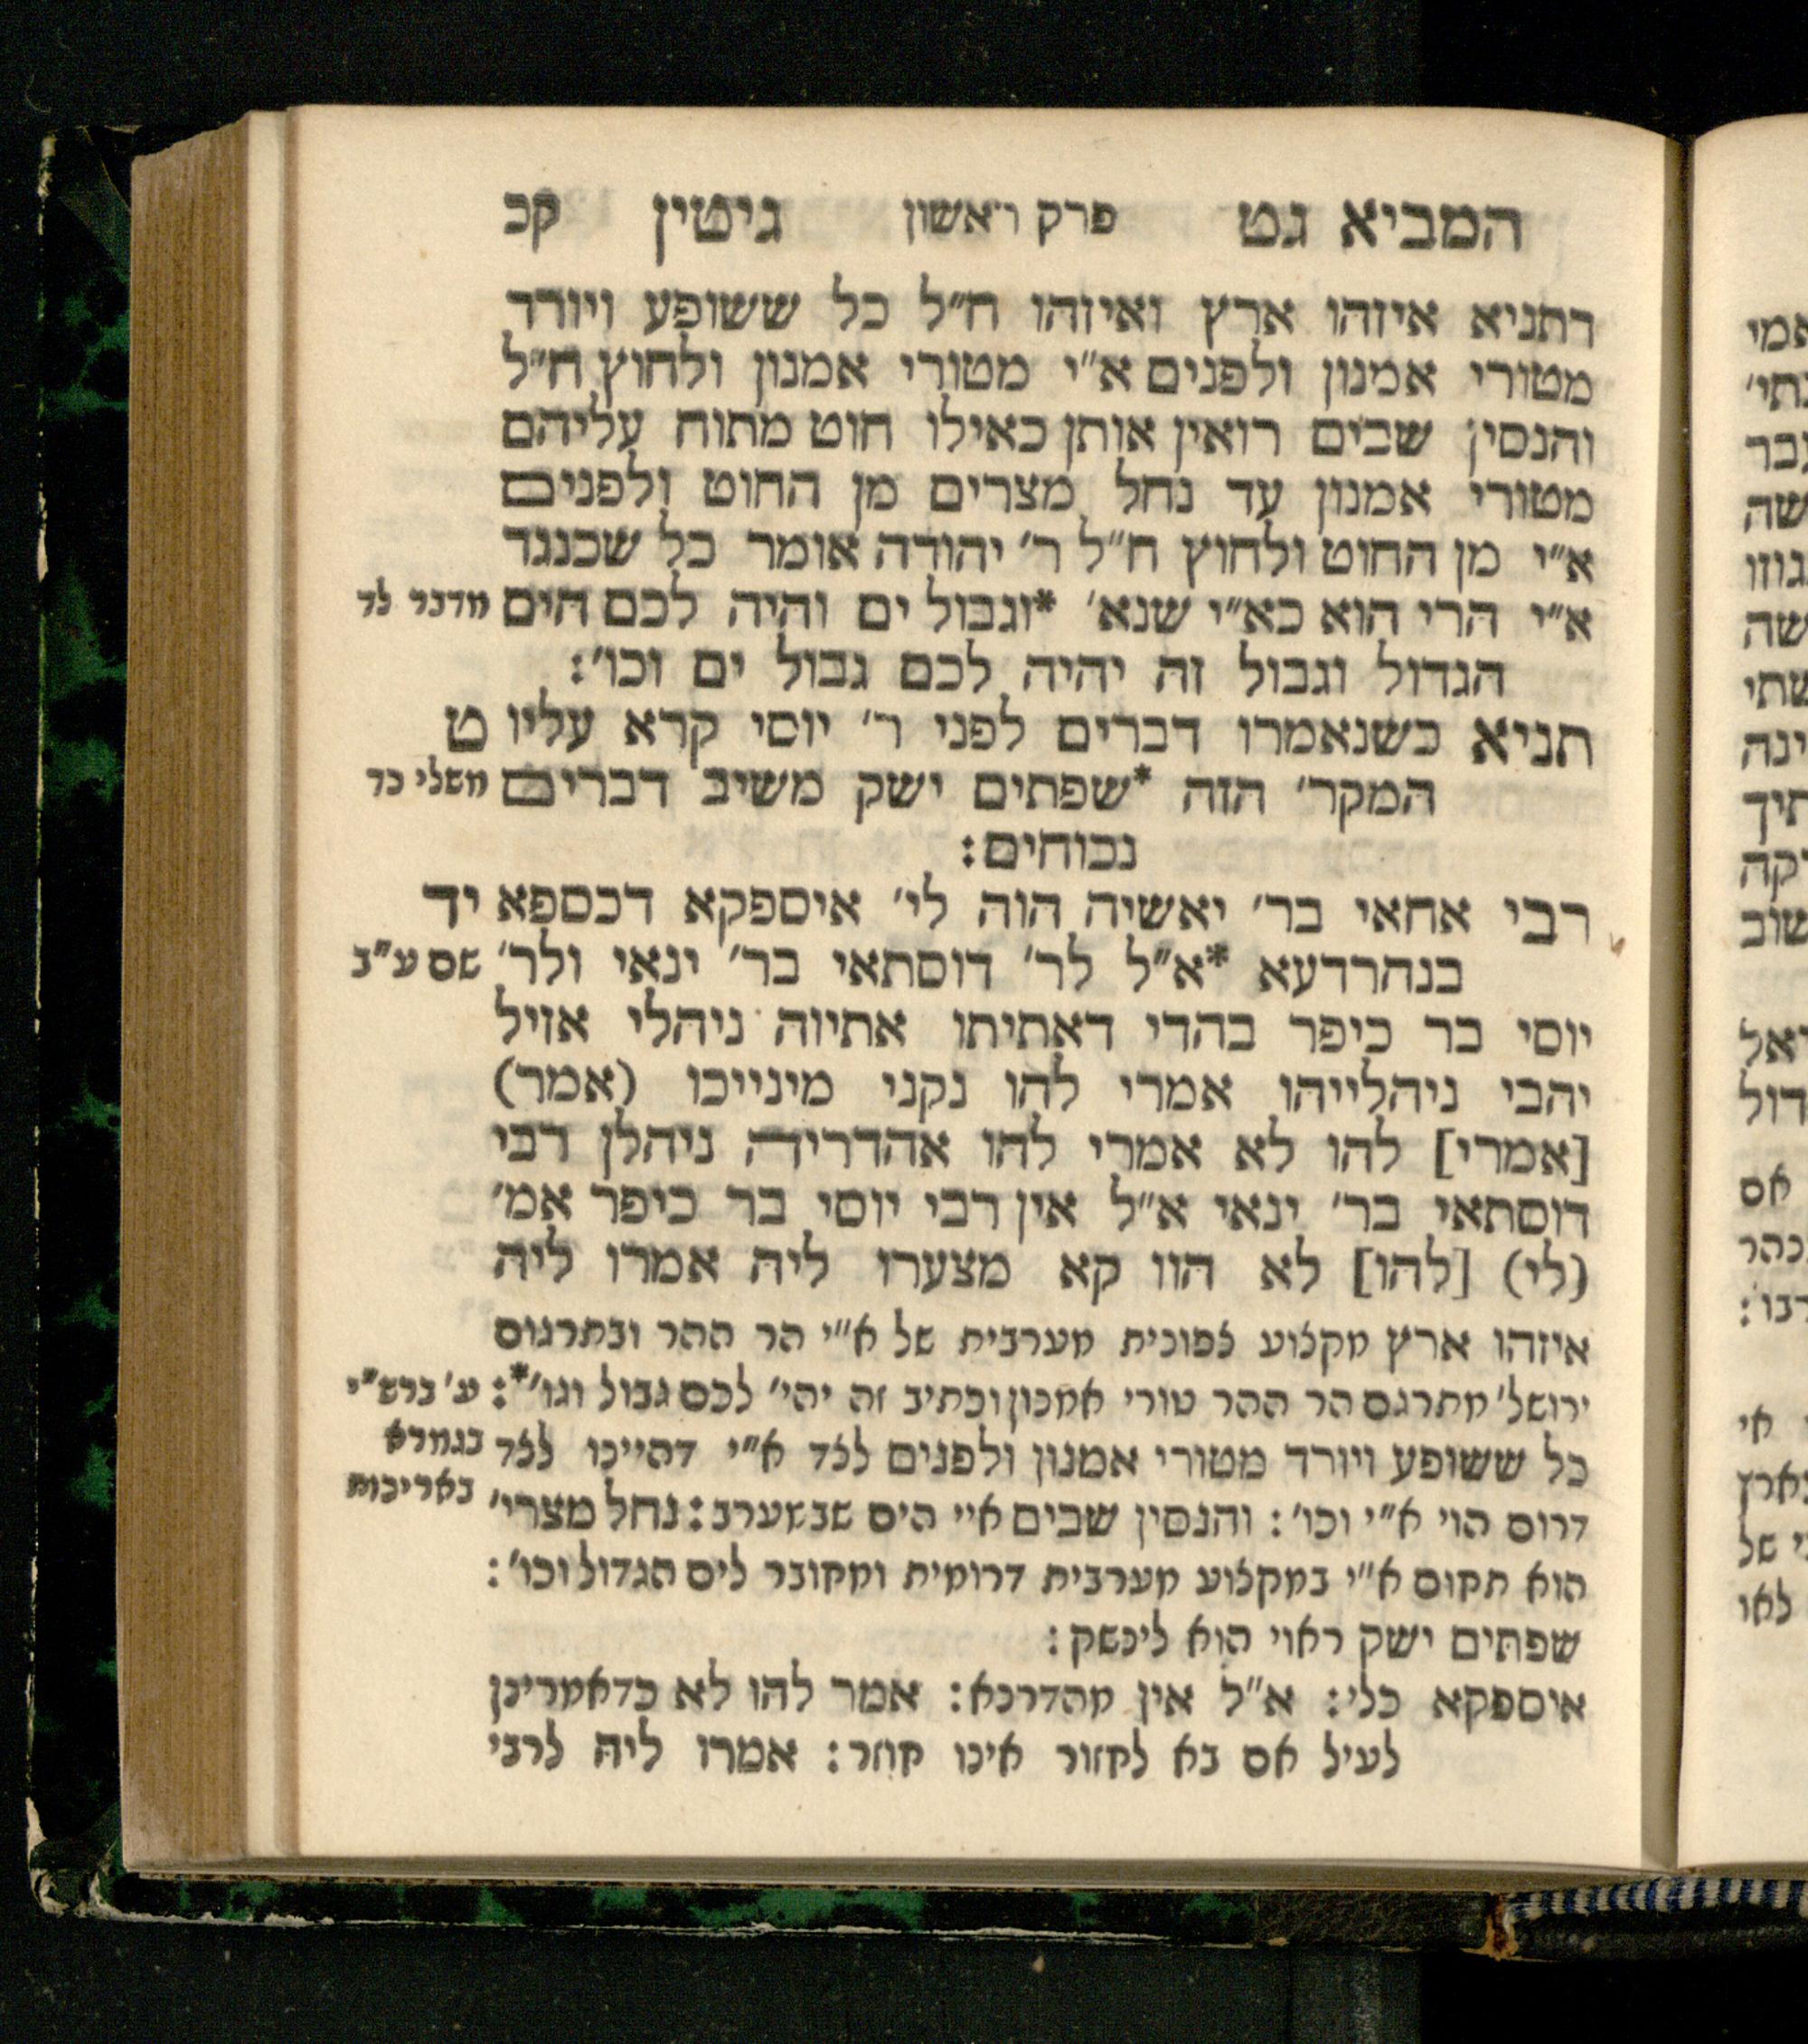 המביא גט פרק ראשון גיטין קכ
דתניא איזהו ארץ ואיזהו ח״ל כל ששופע ויורד
מטורי אמנון ולפנים א״י מטורי אמנון ולחוץ ח״ל
והנסין שבים רואין אותן כאילו חוט מתוח עליהם
מטורי אמנון עד נחל מצרים מן החוט ולפנים
א״י מן החוט ולחוץ ח״ל ר׳ יהודה אומר כל שכנגד
א״י הרי הוא כא״י שנא׳ *וגבול ים והיה לכם הים מדבר לד
הגדול וגבול זה יהיה לכם גבול ים וכו׳:
תניא כשנאמרו דברים לפני ר׳ יוסי קרא עליו ט
המקר׳ הזה *שפתים ישק משיב דברים משלי כד
נכוחים:
רבי אחאי בר׳ יאשיה הוה לי׳ איספקא דכספא יד
בנהרדעא *א״ל לר׳ דוסתאי בר׳ ינאי ולר׳ שם ע״ב
יוסי בר כיפר בהדי דאתיתו אתיוה ניהלי אזיל
יהבי ניהלייהו אמרי להו נקני מינייכו (אמר)
[אמרי] להו לא אמרי להו אהדריה ניהלן רבי
דוסתאי בר׳ ינאי א״ל אין רבי יוסי בר כיפר אמ׳
(לי) [להו] לא הוו קא מצערו ליה אמרו ליה
איזהו ארץ מקצוע צפונית מערבית של א״י הר ההר ובתרגום
ירושל׳ מתרגם הר ההר טורי אמנון וכתיב זה יהי׳ לכם גבול וגו׳*: ע׳ ברש״י
כל ששופע ויורד מטורי אמנון ולפנים לצד א״י דהיינו לצד בגמרא
דרום הוי א״י וכו׳: והנסין שבים איי הים שבמערב: נחל מצרי׳ באריכות
הוא תחום א״י במקצוע מערבית דרומית ומחובר לים הגדול וכו׳:
שפתים ישק ראוי הוא לינשק:
איספקא כלי: א״ל אין מהדרנא: אמר להו לא כדאמרינן
לעיל אם בא לחזור אינו חוזר: אמרו ליה לרבי